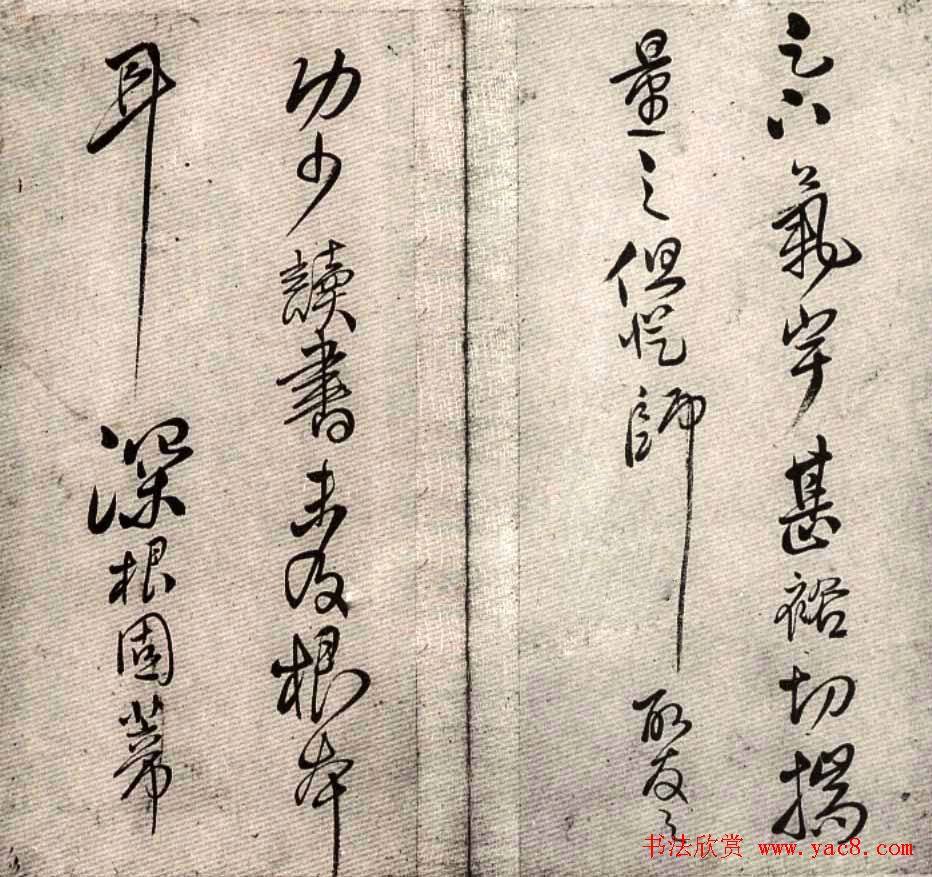 之六氣宇甚裕切揣
量之但從師取友之
功少讀書未及根本
耳深根固蔕
书法欣赏 www.yac8.com